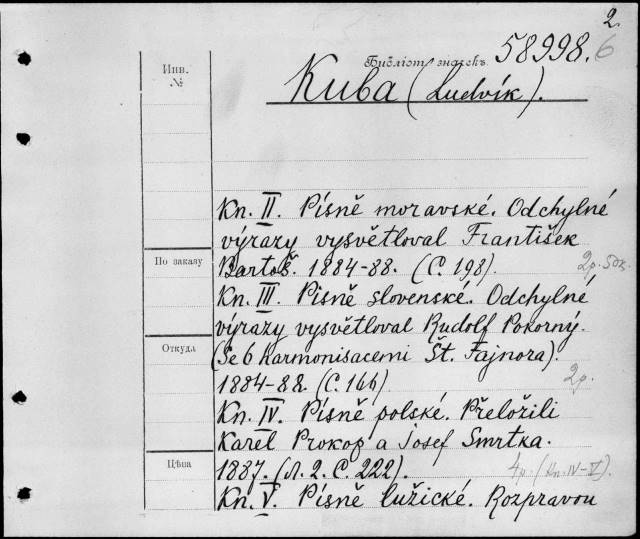 2.
Библіот. значекъ 58998. 6
Инв.
№
Kuba (Ludvík).
Kn. II. Písně moravské. Odchylné
výrazy vysvětloval František
По заказу
Bartoš. 1884-88. (С. 198). 2р. 50к.
Kn. III. Písně slovenské. Odchylné
výrazy vysvětloval Rudolf Pokorný.
Откуда
(Se 6 harmonisacemi Št. Fajnora).
1884-88. (С. 166) 2р.
Kn. IV. Písně polské. Přeložili
Karel Prokop a Josef Smrtka.
Цѣна
1887. (Л. 2. С. 222). 4р. (Kn. IV-V).
Kn. V. Písně lužické. Rozpravou